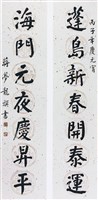 丙子年慶元宵
蓬島新春開泰運
海門元夜慶昇平
蔣夢龍撰書